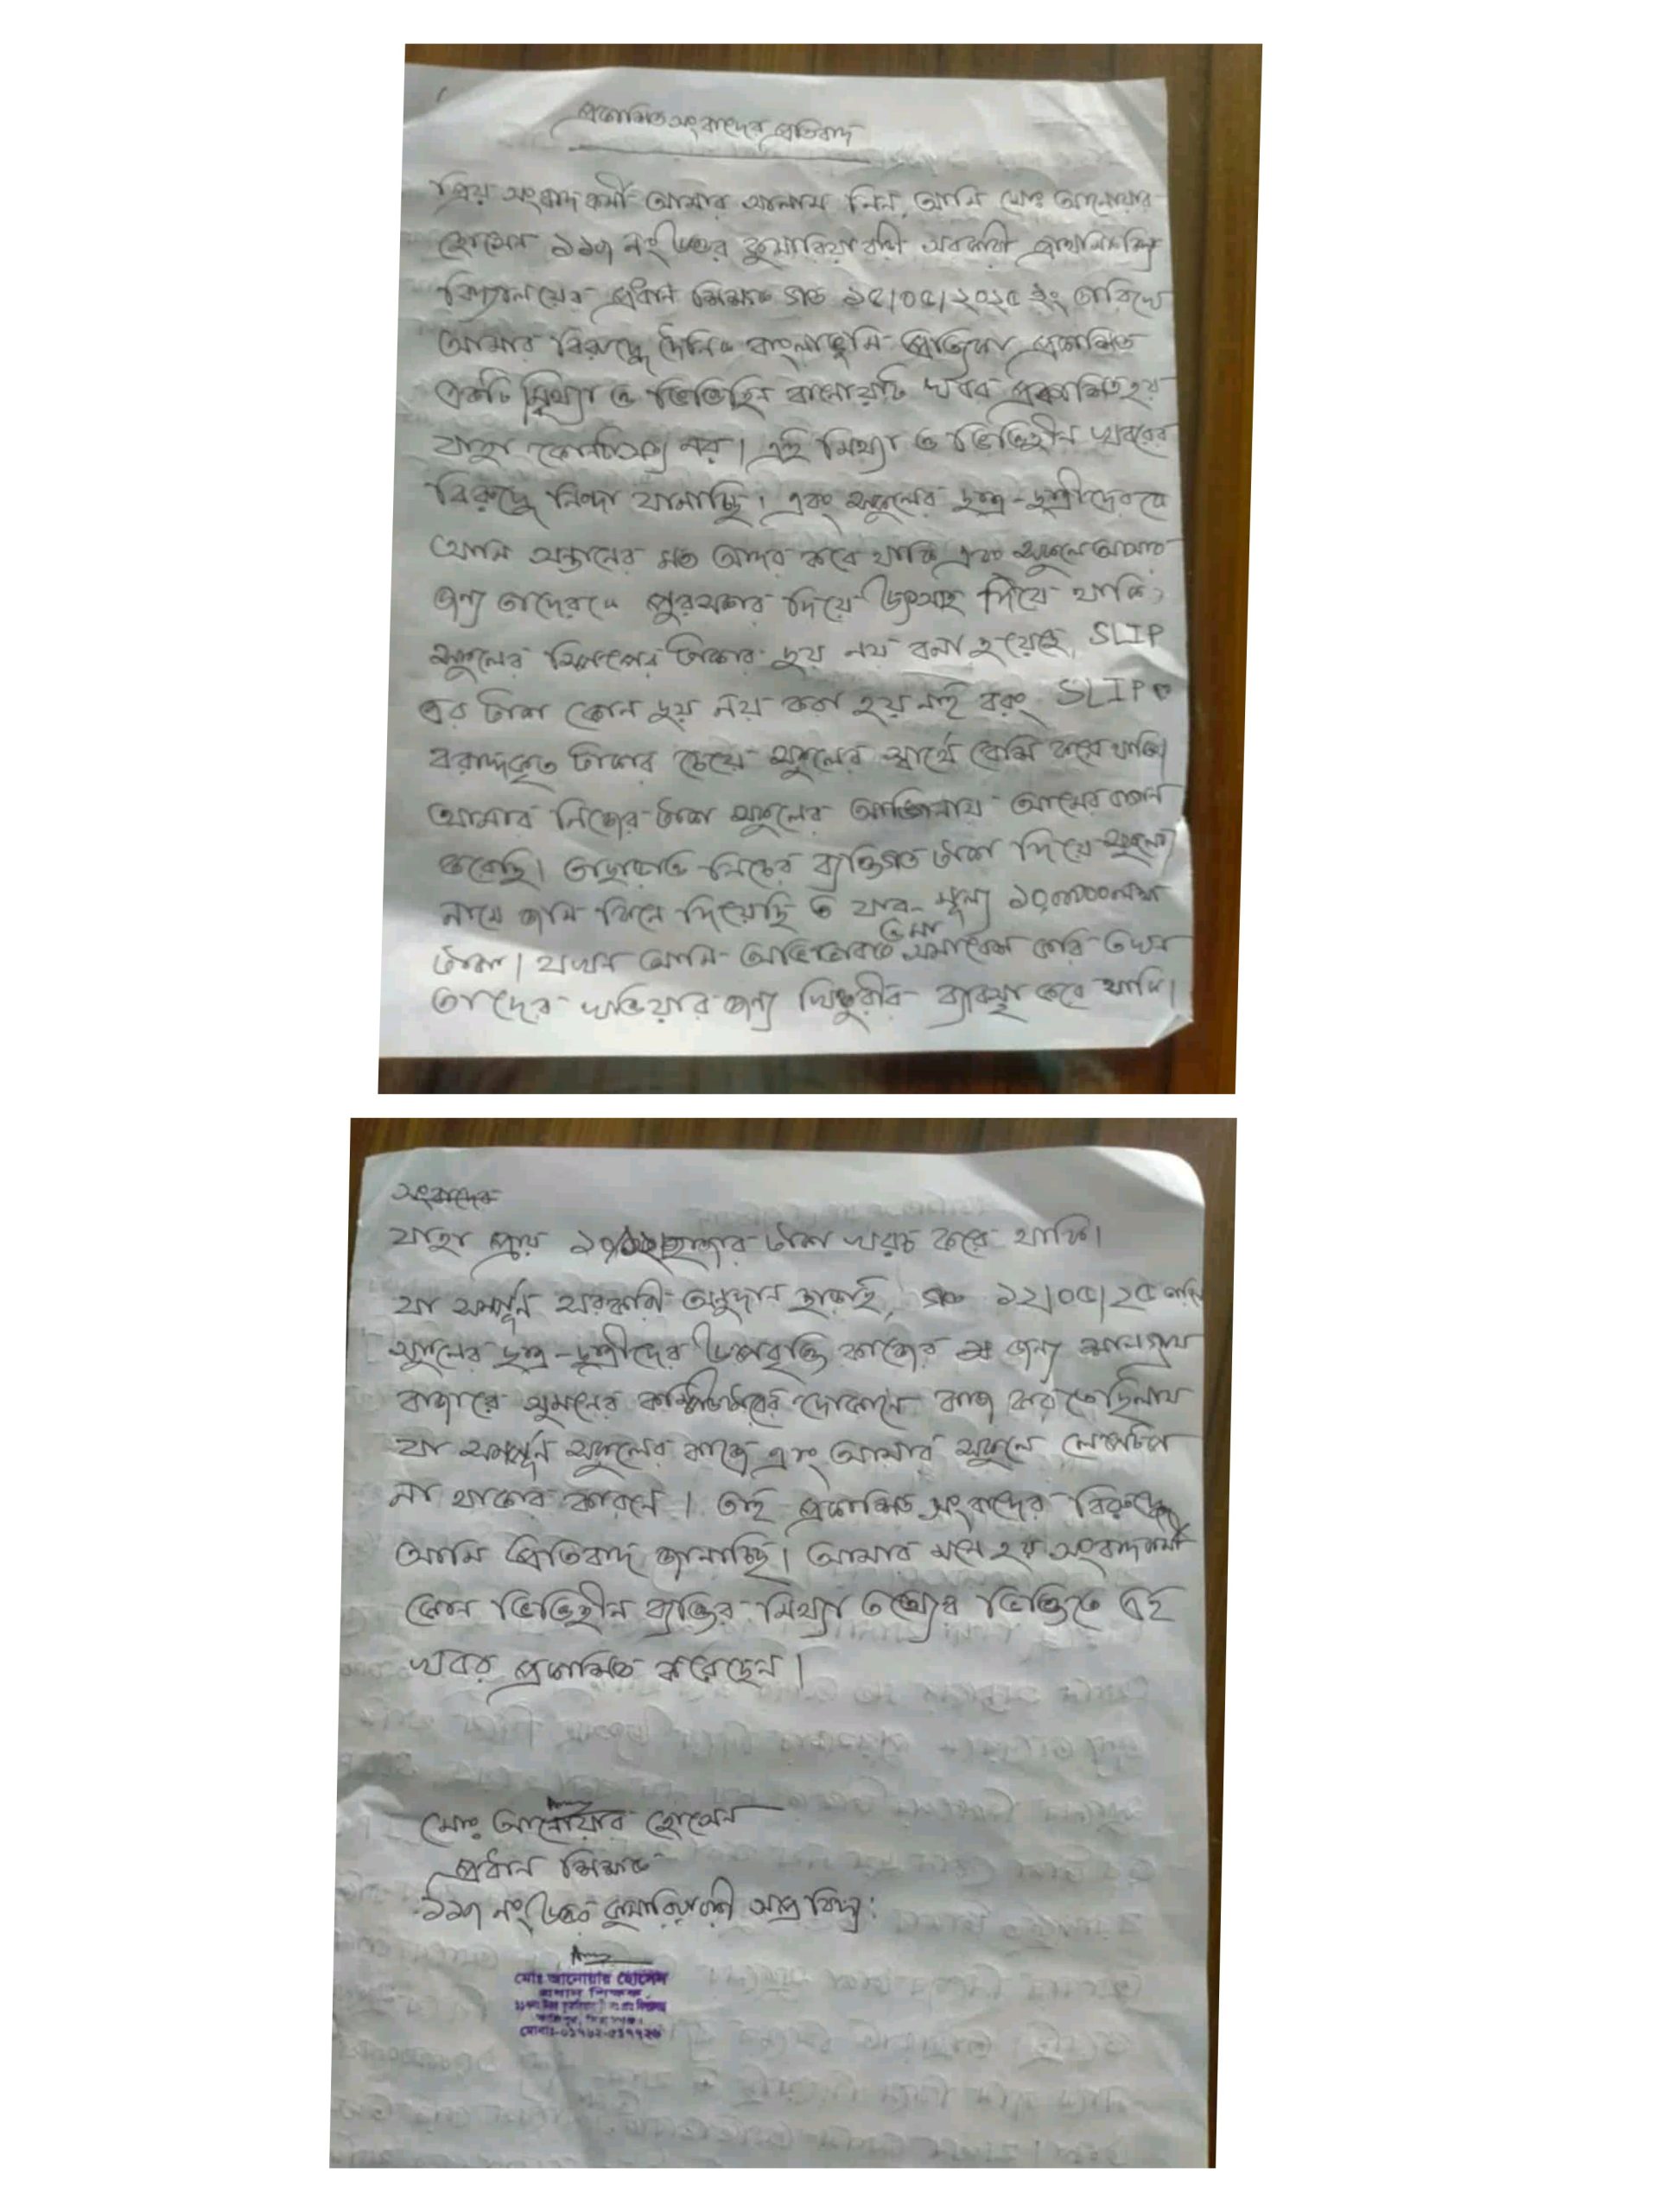 প্রকাশিত সংবাদের প্রতিবাদ
প্রিয় সংবাদ কর্মী আমার সালাম নিন, আমি মোঃ আনোয়ার
হোসেন ১১৭ নং উত্তর কুমারিয়াবাড়ী সরকারী প্রাথমিক
বিদ্যালয়ের প্রধান শিক্ষক গত ১৫/০৫/২০২৫ ইং তারিখে
আমার বিরুদ্ধে দৈনিক বাংলাভূমি প্রত্রিকা প্রকাশিত
একটি মিথ্যা ও ভিত্তিহিন বানোয়াট খবর প্রকাশিত হয়
যাহা কোনটাসত্য নয়। এই মিথ্যা ও ভিত্তিহীন খবরের
বিরুদ্ধে নিন্দা যানাচ্ছি। এবং স্কুলের ছাত্র-ছাত্রীদেরকে
আমি সন্তানের মত আদর করে থাকি এবং স্কুলে আসার
জন্য তাদেরকে পুরস্কার দিয়ে উৎসাহ দিয়ে থাকি,
স্কুলের স্লিপের টাকার ছয় নয় বলা হয়েছে, SLIP
এর টাকা কোন ছয় নয় করা হয় নাই বরং SLIP এ
বরাদ্দকৃত টাকার চেয়ে স্কুলের স্বার্থে বেশি করে থাকি।
আমার নিজের টাকা স্কুলের আঙ্গিনায় আমের বাগান
করেছি। তাছাড়াও নিজের ব্যক্তিগত টাকা দিয়ে স্কুলের
নামে জমি কিনে দিয়েছি ও যার মূল্য
টাকা। যখন আমি অভিভাবক সমাবেশ করি তখন
তাদের খাওয়ার জন্য খিচুরীর ব্যাবস্থা করে থাকি।
সংবাদের
যাহা প্রায় হাজার টাকা খরচ করে থাকি।
যা সম্পূর্ন সরকারি অনুদান ছাড়াই, গত ১২/০৫/২৫
স্কুলের ছাত্র-ছাত্রীদের উপবৃত্তি কাজের জন্য
বাজারে সুমনের কম্পিউটারের দোকানে কাজ করতেছিলাম
যা সম্পূর্ন স্কুলের কাজে এবং আমার স্কুলে লেপটপ
না থাকার কারনে। তাই প্রকাশিত সংবাদের বিরুদ্ধে
আমি প্রতিবাদ জানাচ্ছি। আমার মনে হয় সংবাদকর্মী
কোন ভিত্তিহীন ব্যক্তির মিথ্যা তথ্যের ভিত্তিতে এই
খবর প্রকাশিত করেছেন।
মোঃ আনোয়ার হোসেন
প্রধান শিক্ষক
১১৭ নং উত্তর কুমারিয়াবাড়ী সঃপ্রাঃ বিদ্যাঃ
মোঃ আনোয়ার হোসেন
প্রধান শিক্ষক